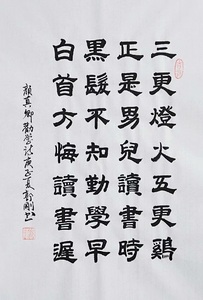 三更燈火五更鷄
正是男兒讀書時
黑髮不知勤學早
白首方悔讀書遲
顏真卿勸學詩庚子夏